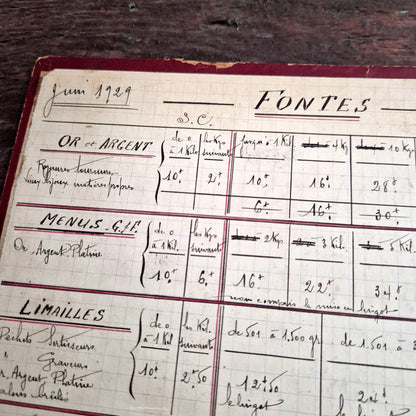 Juin 1929
FONTES
S. C.
OR et ARGENT
de 0 à 1 Kilo
les Kgs suivants
jusqu'à 1 Kil.
4 Kg
10 Kg
Rognures tournures
vieux bijoux matières propres
10.f
2.f
10.f
16.f
28.f
6.f
16.f
30.f
MENUS-G.&P.
de 0 à 1 Kil.
les Kgs suivants
2 Kgs
3 Kil.
5 Kil
Or Argent Platine
10.f
6.f
16.f
22.f
34.f
non compris la mise en lingot
LIMAILLES
de 0 à 1 Kil.
les Kil. suivants
de 501 à 1.500 gr.
de 1.501 à 3
Déchets Sertisseurs
" Graveurs
Or, Argent Platine
10.f
2f50
12f50
24f
le lingot